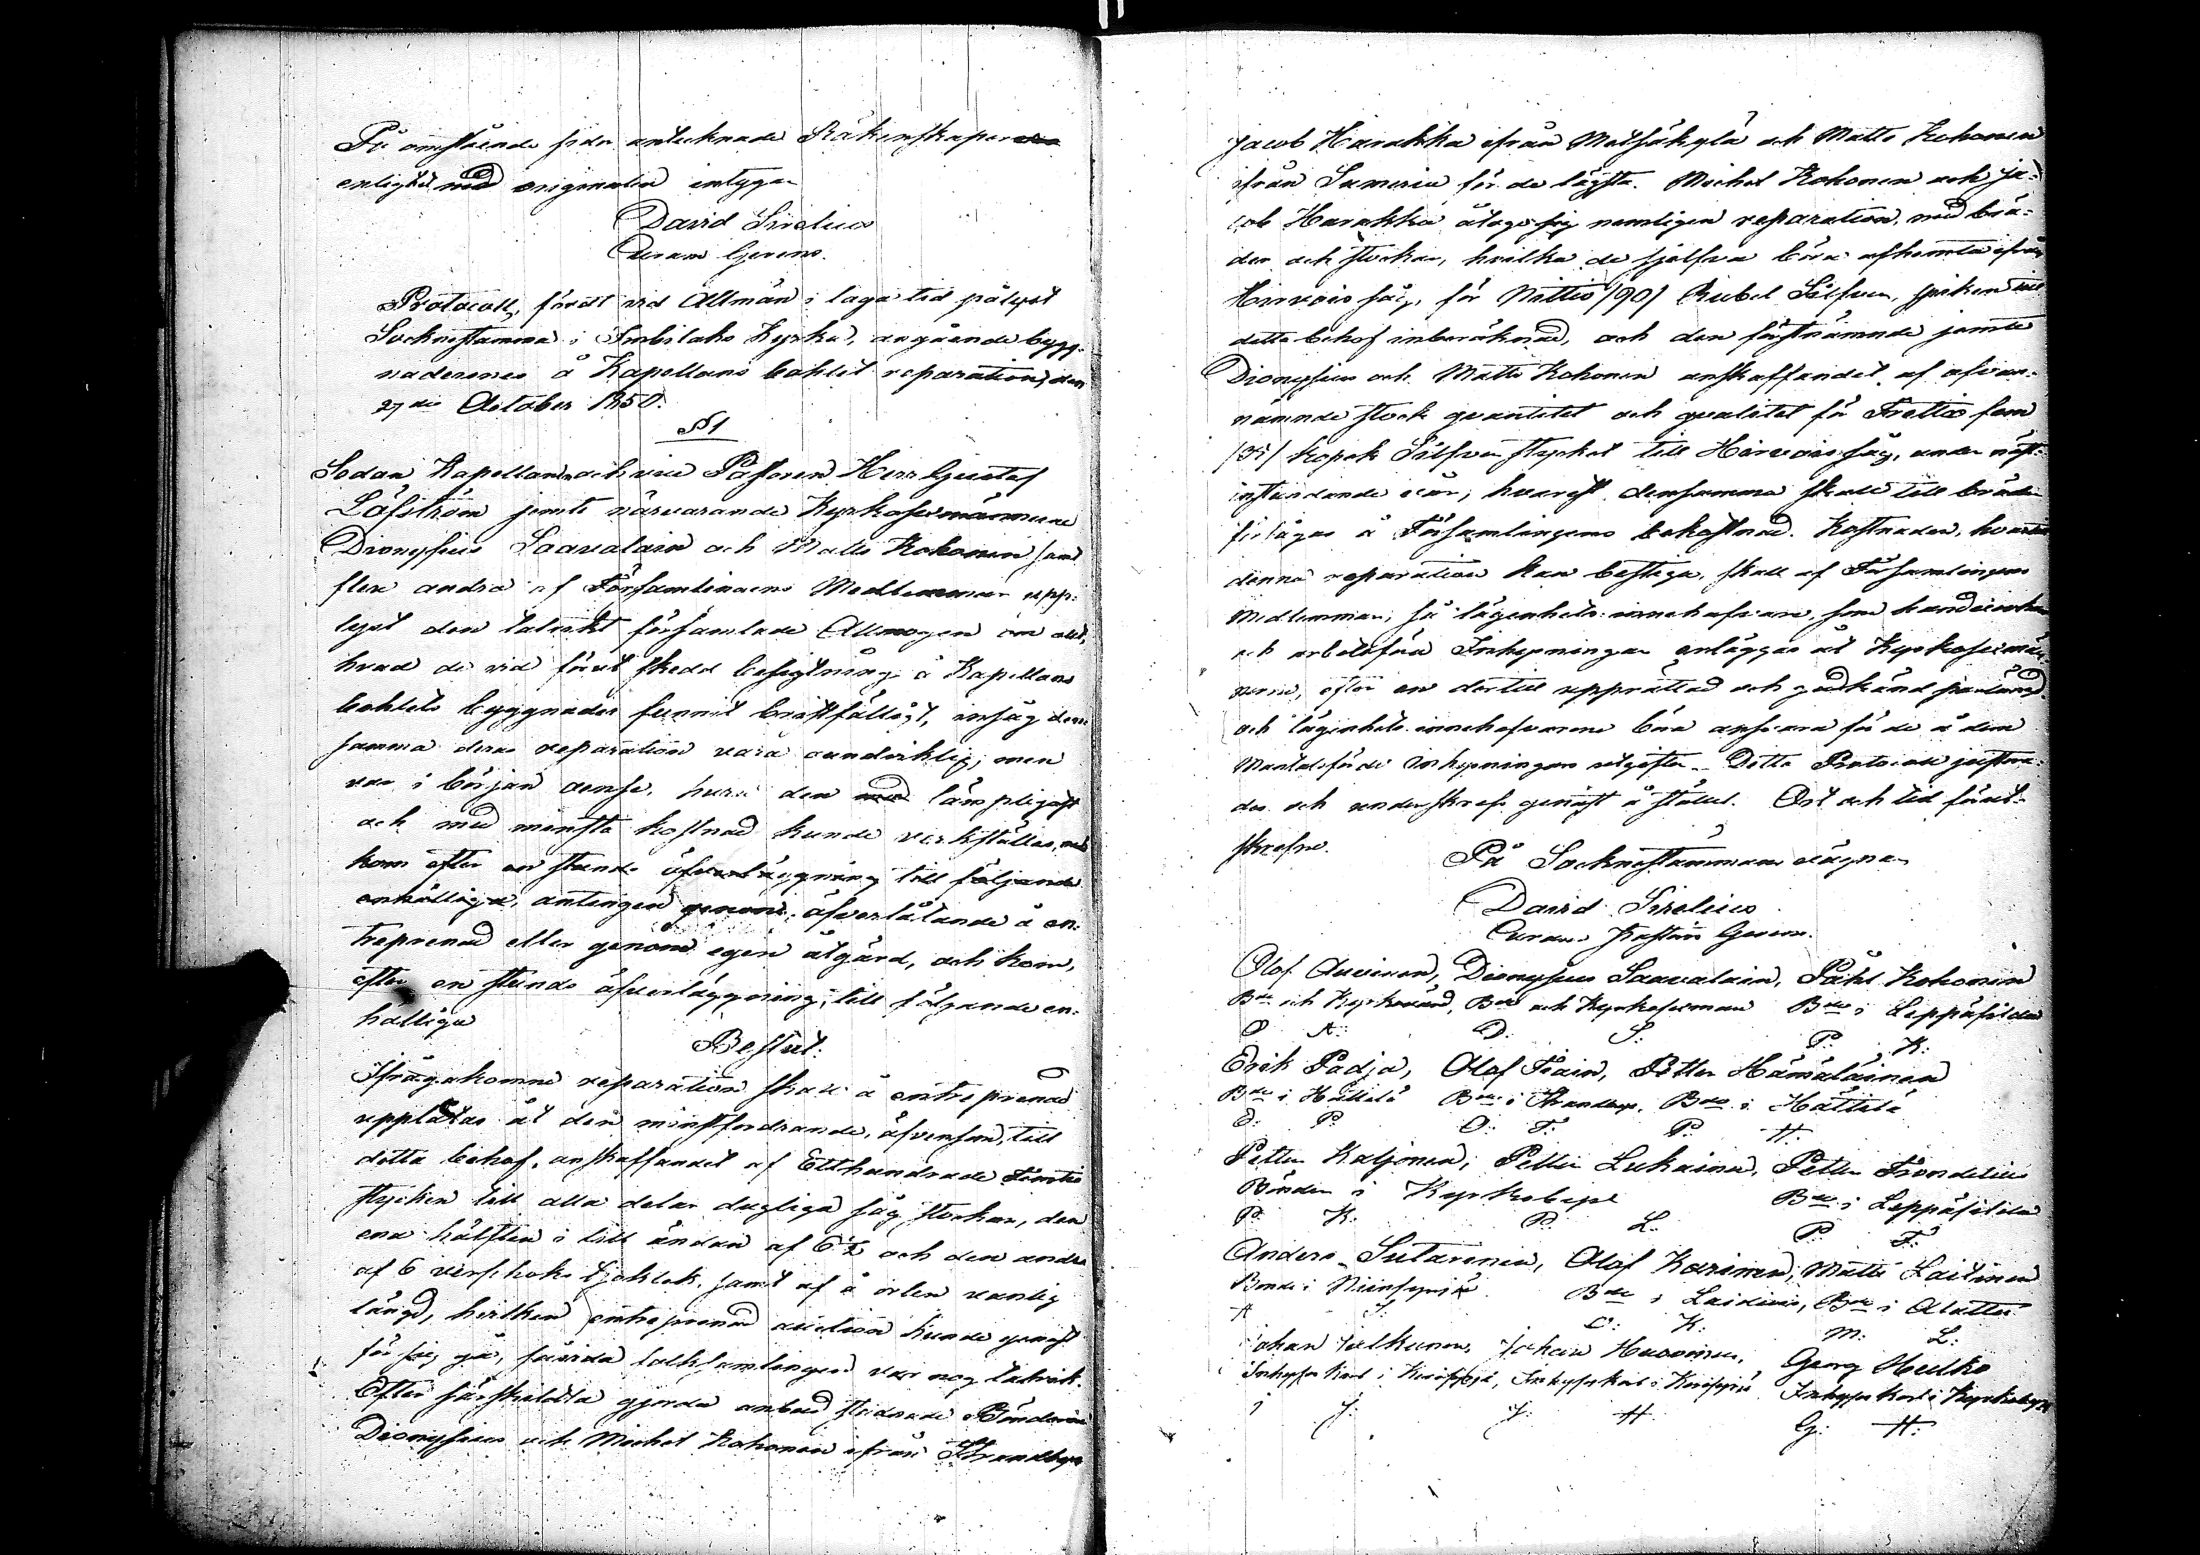 På omstående sidor antecknade Räkenskapers
enlighet med originalen intygar
David Sirelius
Curam Gerens.
Protocoll, fördt vid Allmän i laga tid pålyst
Socknestämma i Imbilaks Kyrka, angående bygg-
nadernes å Kapellans bohlet reparation, den
27de October 1850.
§ 1
Sedan Kapellanen och vice Pastoren Herr Gustaf
Löfström jemte närvarande Kyrkosexmännerne
Dionysius Saavalain och Matts Kokonen samt
flere andra af Församlingens Medlemmar upp-
lyst den talrikt församlade Allmogen om allt,
hvad de vid förut skedd besigtning å Kapellans
bohlets byggnader funnit bristfälligt, insåg den-
samma deras reparation vara oundviklig; men
var i början oense, huru den lämpligast
och med minsta kostnad kunde verkställas,
kom efter en stunds öfverläggning till följande
enhälliga, antingen genom öfverlåtande å en-
treprenad eller genom egen åtgärd, och kom,
efter en stunds öfverläggning, till följande en-
hälliga
Beslut:
Ifrågakomne reparation skall å entreprenad
upplåtas åt den minstfordrande, äfvensom, till
detta behof, anskaffandet af Etthundrade Femtio
stycken till alla delar dugliga såg stockar, den
ena hälften i lill ändan af 6½ och den andra
af 6 verschoks tjocklek, samt af å orten vanlig
längd, hvilken entreprenad auction kunde genast
för sig gå, såvida folksamlingen var nog talrik.
Efter särskildta gjorda anbud stadnade Bönderne
Dionysius och Michel Kokonen ifrån Strandby
Jacob Harakka ifrån Metsäkylä och Matts Kokonen
ifrån Sumeria för de lägsta. Michel Kokonen och Ja-
cob Harakka åtogo sig nemligen reparation, med brä-
der och stockar, hvilka de sjelfva böra afhemta ifrån
Hirvois såg, för Nittio /90/ Rubel Silfver, spiken till
detta behof inberäknad, och den förstnämnde jemte
Dionysius och Matts Kokonen anskaffandet af ofvan-
nämnde stock quantitet och qvalitet för Trettio fem
/35/ kopek Silfver stycket till Hirvois såg, under näst-
instundande vår, hvarest densamma skall till bräder
försågas å Församlingens bekostnad. Kostnaden, hvartill
denna reparation kan bestiga, skall af Församlingens
Medlemmar, så lägenhets-innehafvare, som handtverkare
och arbetsföra Inhysningar erläggas åt Kyrkosexmän-
nerne, efter en dertill upprättad och godkänd
och lägenhets innehafvarene böra ansvara för de å dem
Mantalsförde inhysningars utgifter. Detta Protocoll justera-
des och underskrefs genast å stället. Ort och tid förut-
skrefne.
På Sockneståmmans vägnar
David Sirelius
Curam Pastoris Gerens.
Olof Auvinen, Dionysius Saavalain, Påhl Kokonen
Bde och Kyrkvärd, Bde och Kyrkosexman Bde i Leppäsilda
O: A: D: S: P: K:
Erik Padja, Olof Tiain, Petter Hämäläinen
Bde i Hättelä Bde i Strandby, Bde i Hättelä
E: P: O: T: P: H:
Petter Kaljonen, Petter Lukain, Petter Frondelius
Bönder i Kyrkobyn Bde i Leppäsilda
P: K: P: L: P: F:
Anders Sutarinen, Olof Karinen, Matts Laitinen
Bonde i Niinisyrjä Bde i Laitiois, Bde i Alattu
A: S: O: K: M: L:
Johan Jalkanen, Johan Huovinen, Georg Hulko
Inhyses Karl i Kirsisyrjä, Inhyses Karl i Kirsisyrjä, Inhyses Karl i Kyrkobyn
J: J: J: H: G: H: